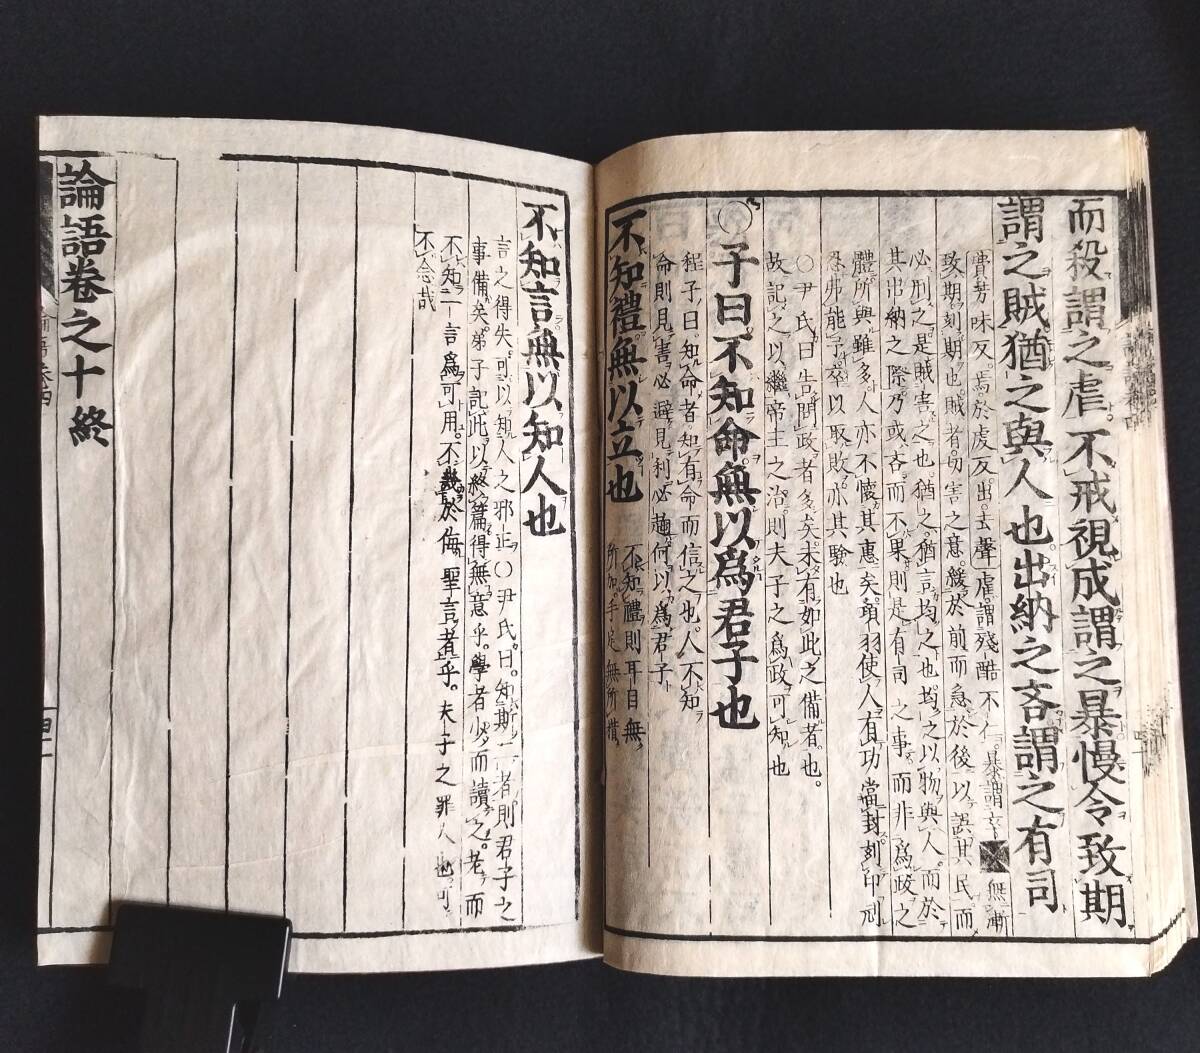 而殺謂之虐不戒視成謂之暴慢令致期
謂之賊猶之與人也出納之吝謂之有司
費芳味反焉於虔反出去聲虐謂殘酷不仁暴謂卒無漸
致期刻期也賊者切害之意緩於前而急於後以誤其民而
必刑之是賊害之也猶之猶言均之也均之以物與人而於
其出納之際乃或吝而不果則是有司之事而非爲政之
體所與雖多人亦不懷其惠矣項羽使人有功當封刻印刓
忍弗能予卒以取敗亦其驗也
○尹氏曰告問政者多矣未有如此之備者也。
故記之以繼帝王之治則夫子之爲政可知也
○子曰不知命無以爲君子也
程子曰知命者知有命而信之也人不知
命則見害必避見利必趨何以爲君子
不知禮無以立也
不知禮則耳目無
所加手足無所措
不知言無以知人也
言之得失可以知人之邪正○尹氏曰知斯三者則君子之
事備矣弟子記此以終篇得無意乎學者少而讀之老而
不知一言爲可用不幾於侮聖言者乎夫子之罪人也可
不念哉
論語卷之十終